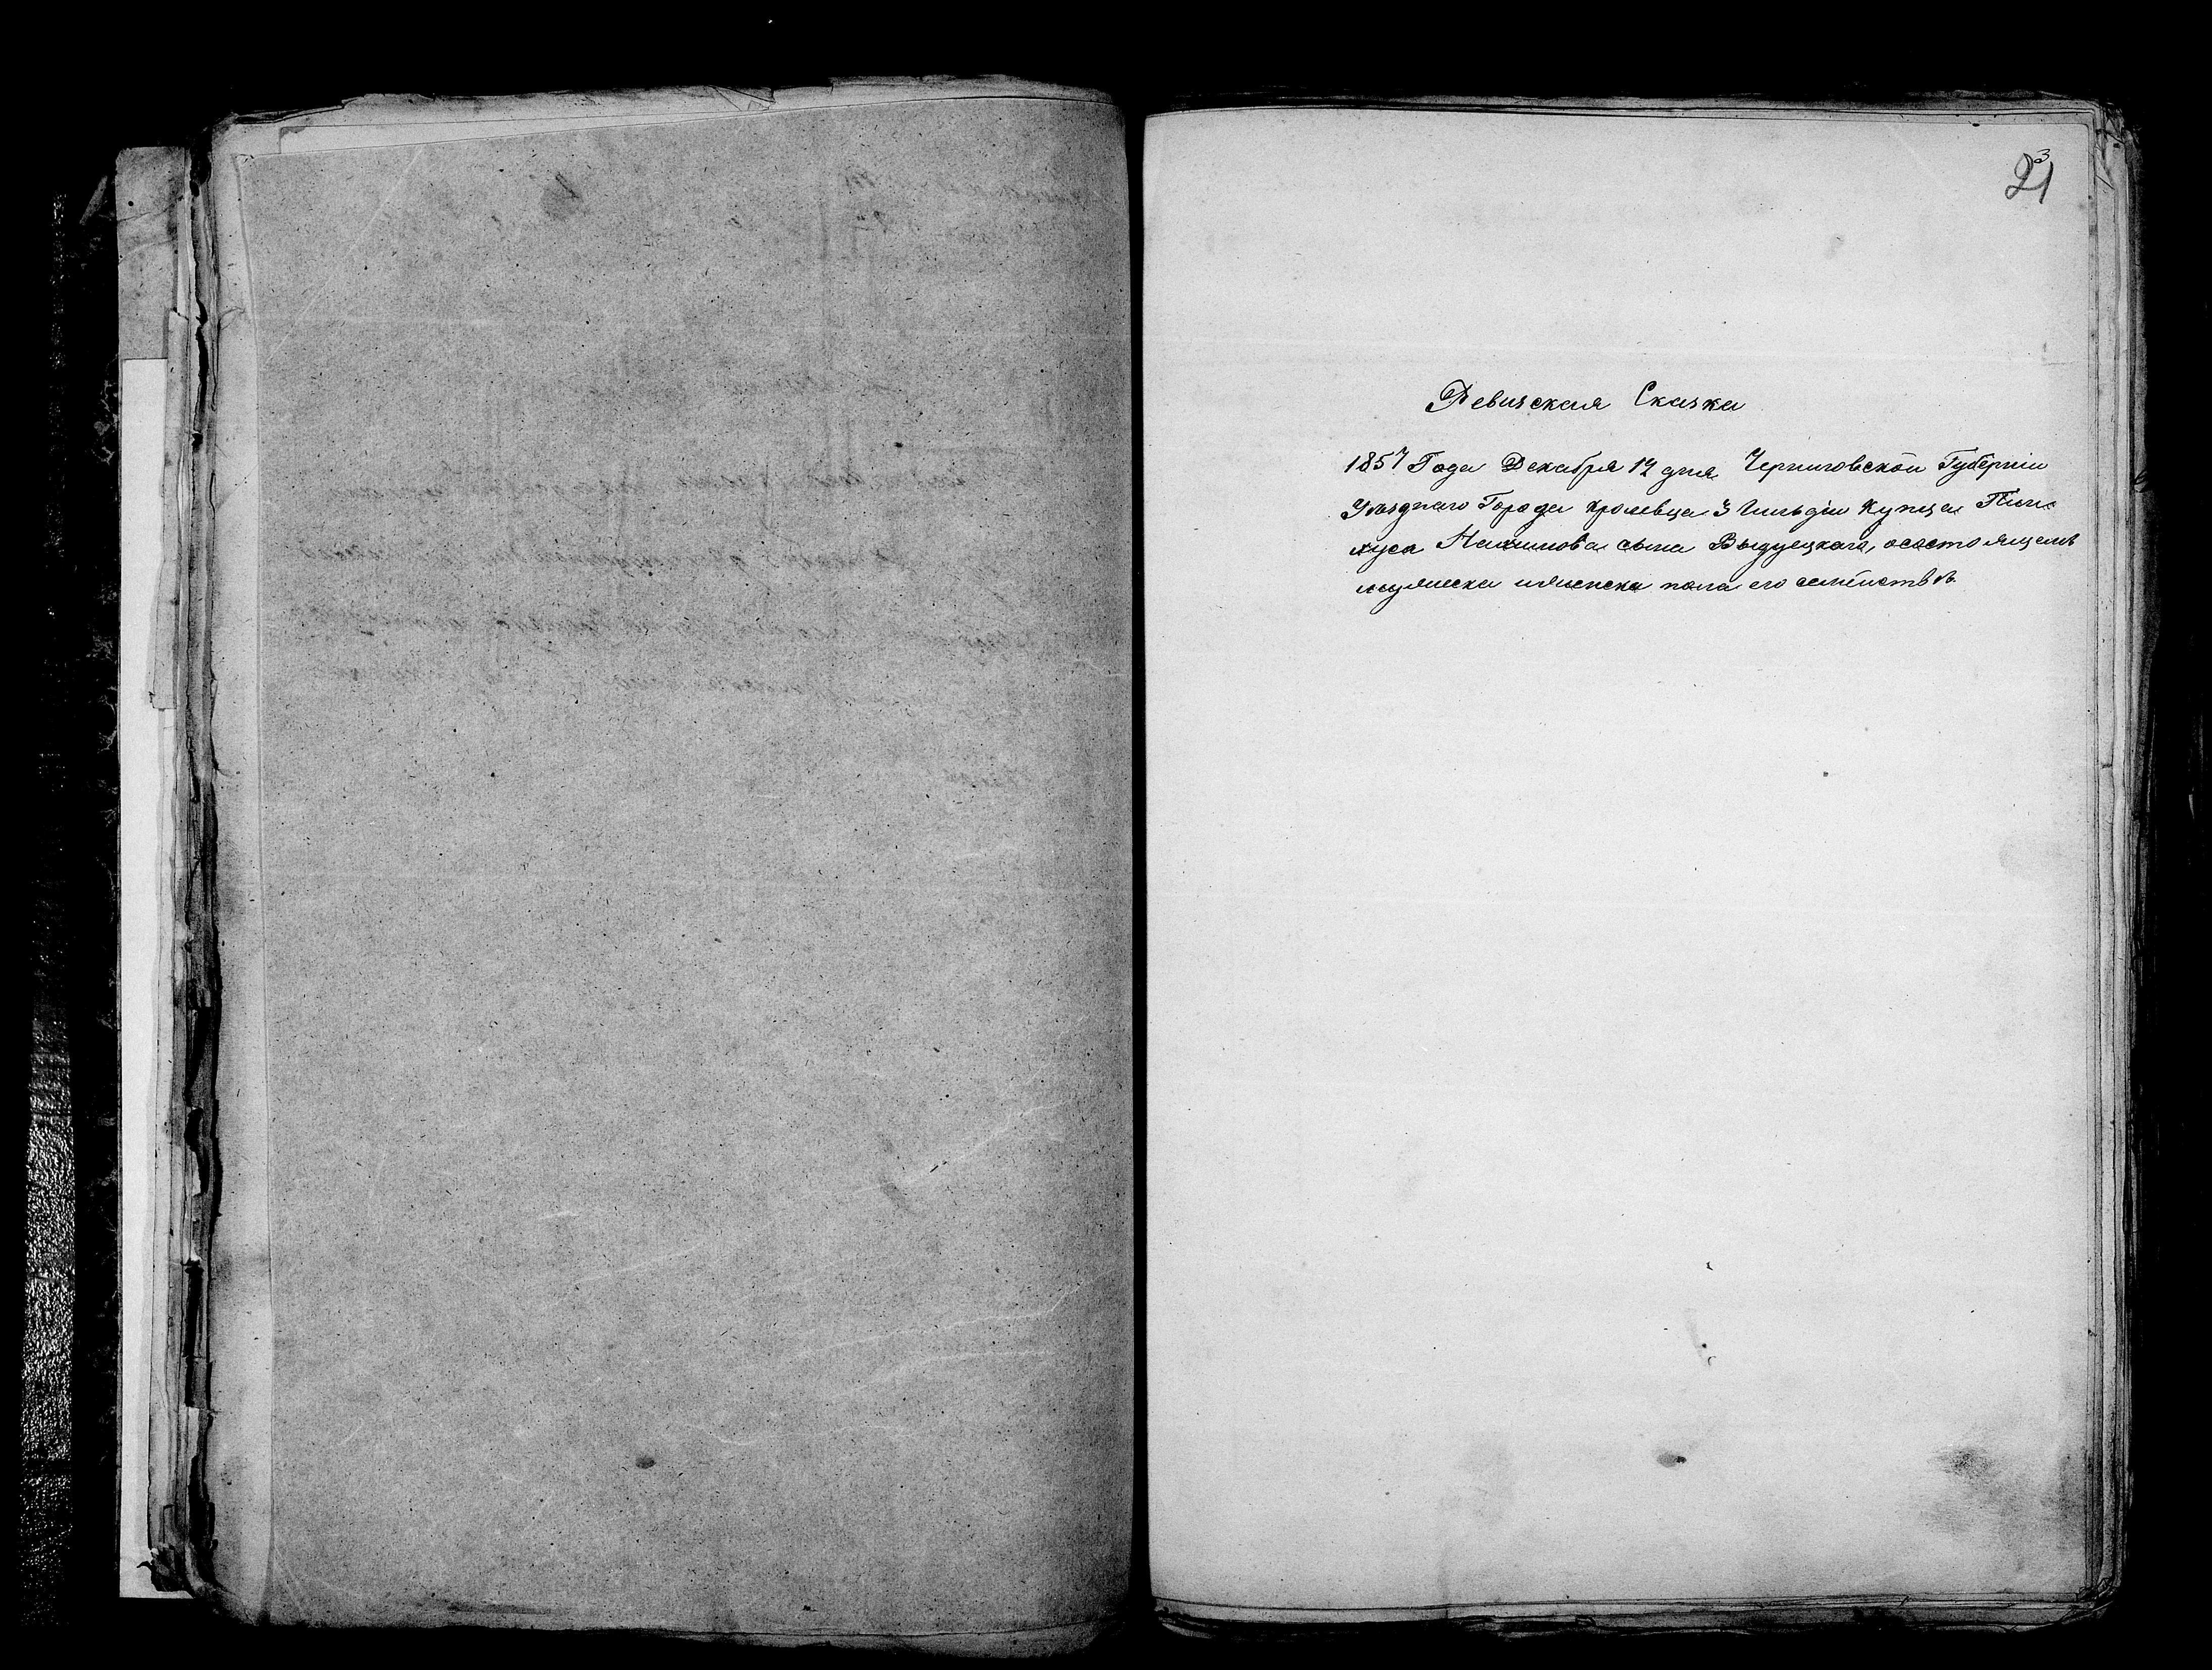 3
21
Ревизская Сказка
1857 Года Декабря 12 дня Черниговской Губерніи
Уѣзднаго Города Кролевца 3 Гильдіи Купца Пин-
хуса Нахимова сына Выдуецкаго, осостоящемъ
мужеска иженска пола его семействѣ